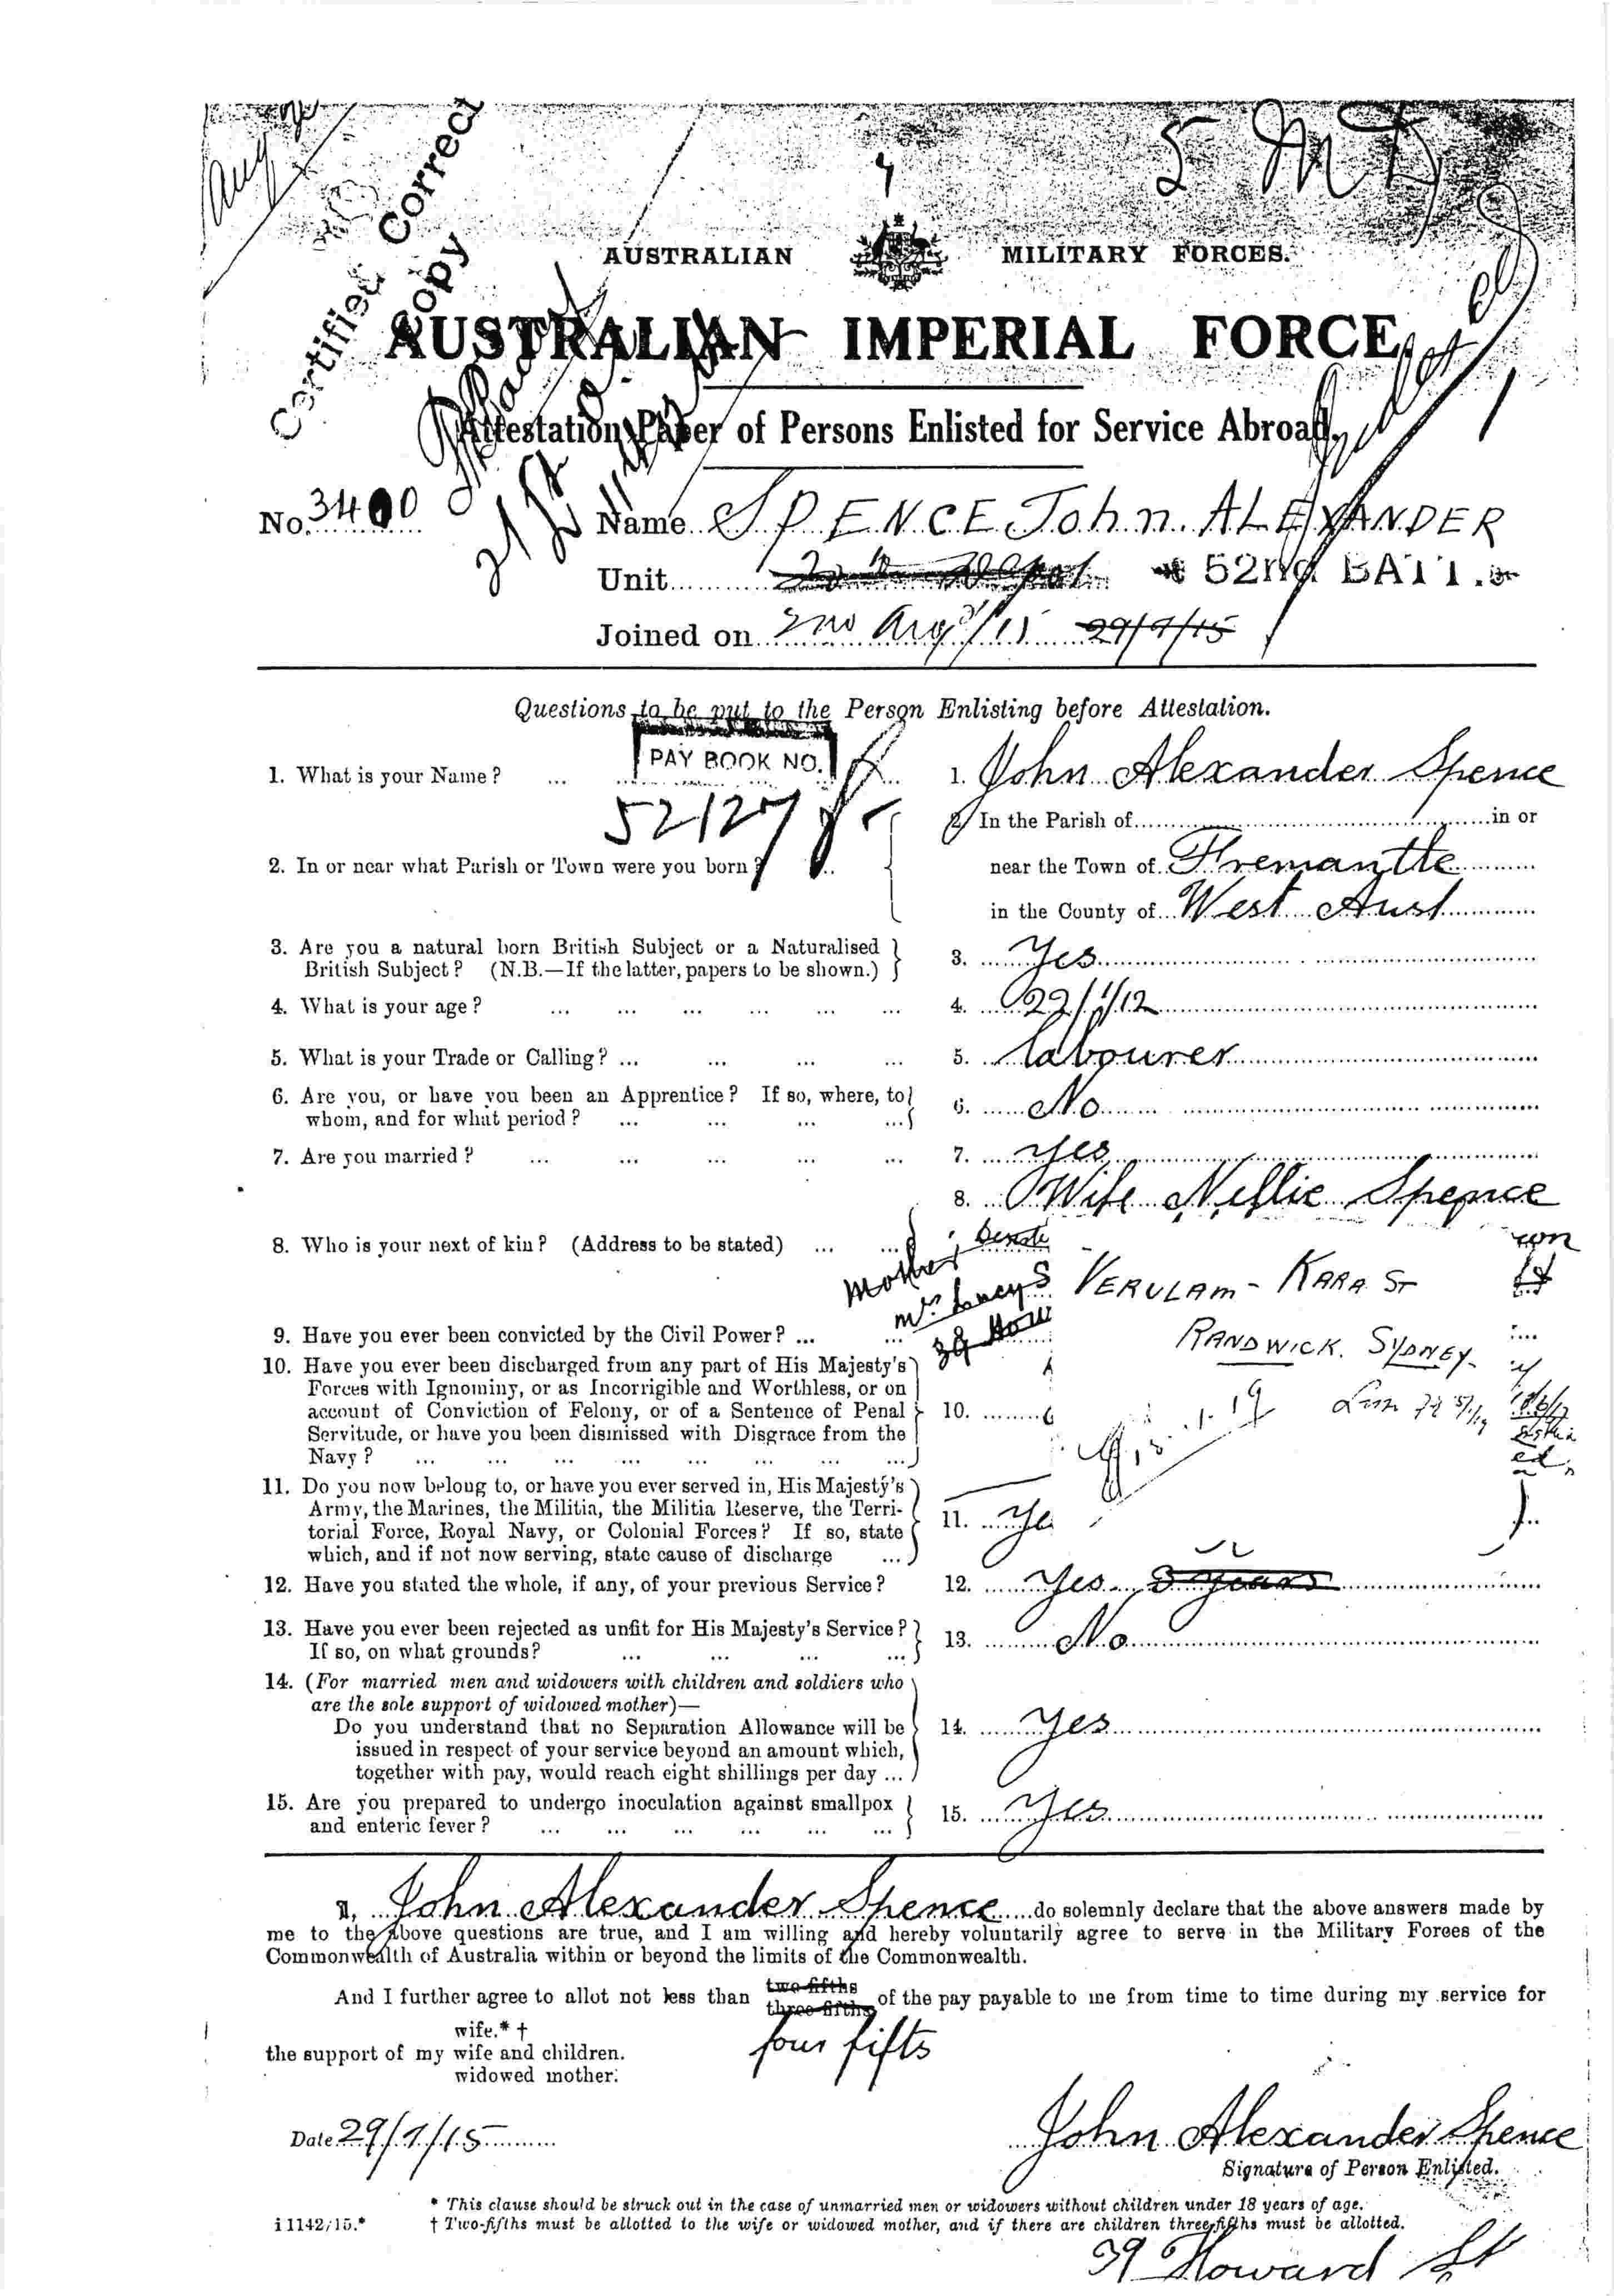 Certified Correct
Copy
5 MD
AUSTRALIAN MILITARY FORCES.
AUSTRALIAN IMPERIAL FORCE.
Attestation Paper of Persons Enlisted for Service Abroad.
No. 3400 Name SPENCE John ALEXANDER
Unit 52nd BATT.
Joined on 2nd Aug/15 29/7/15
Questions to be put to the Person Enlisting before Attestation.
PAY BOOK NO.
52127
1. What is your Name? ... 1. John Alexander Spence
2. In the Parish of in or
2. In or near what Parish or Town were you born? near the Town of Fremantle
in the County of West Aust
3. Are you a natural born British Subject or a Naturalised
British Subject? (N.B.—If the latter, papers to be shown.) 3. Yes
4. What is your age? ... ... ... ... ... ... 4. 22/1/12
5. What is your Trade or Calling? ... ... ... ... 5. labourer
6. Are you, or have you been an Apprentice? If so, where, to
whom, and for what period? ... ... ... ... 6. No
7. Are you married? ... ... ... ... ... 7. Yes
8. Wife Nellie Spence
8. Who is your next of kin? (Address to be stated) ... ...
Mother
Mrs Lucy S VERULAM - KARA ST
39 How
RANDWICK. SYDNEY.
9. Have you ever been convicted by the Civil Power? ... ...
10. Have you ever been discharged from any part of His Majesty's
Forces with Ignominy, or as Incorrigible and Worthless, or on
account of Conviction of Felony, or of a Sentence of Penal 10.
Servitude, or have you been dismissed with Disgrace from the
Navy? ... ... ... ... ... ... ...
11. Do you now belong to, or have you ever served in, His Majesty's
Army, the Marines, the Militia, the Militia Reserve, the Terri-
torial Force, Royal Navy, or Colonial Forces? If so, state 11. Ye
which, and if not now serving, state cause of discharge ...
12. Have you stated the whole, if any, of your previous Service? 12. Yes. 3 years
13. Have you ever been rejected as unfit for His Majesty's Service?
If so, on what grounds? ... ... ... ... 13. No
14. (For married men and widowers with children and soldiers who
are the sole support of widowed mother)—
Do you understand that no Separation Allowance will be 14. Yes
issued in respect of your service beyond an amount which,
together with pay, would reach eight shillings per day ...
15. Are you prepared to undergo inoculation against smallpox
and enteric fever? ... ... ... ... ... ... 15. Yes
I, John Alexander Spence do solemnly declare that the above answers made by
me to the above questions are true, and I am willing and hereby voluntarily agree to serve in the Military Forces of the
Commonwealth of Australia within or beyond the limits of the Commonwealth.
two-fifths
And I further agree to allot not less than three-fifths of the pay payable to me from time to time during my service for
four fifts
wife.* †
the support of my wife and children.
widowed mother.
Date 29/7/15
John Alexander Spence
Signature of Person Enlisted.
* This clause should be struck out in the case of unmarried men or widowers without children under 18 years of age.
i 1142/15.* † Two-fifths must be allotted to the wife or widowed mother, and if there are children three-fifths must be allotted.
39 Howard St